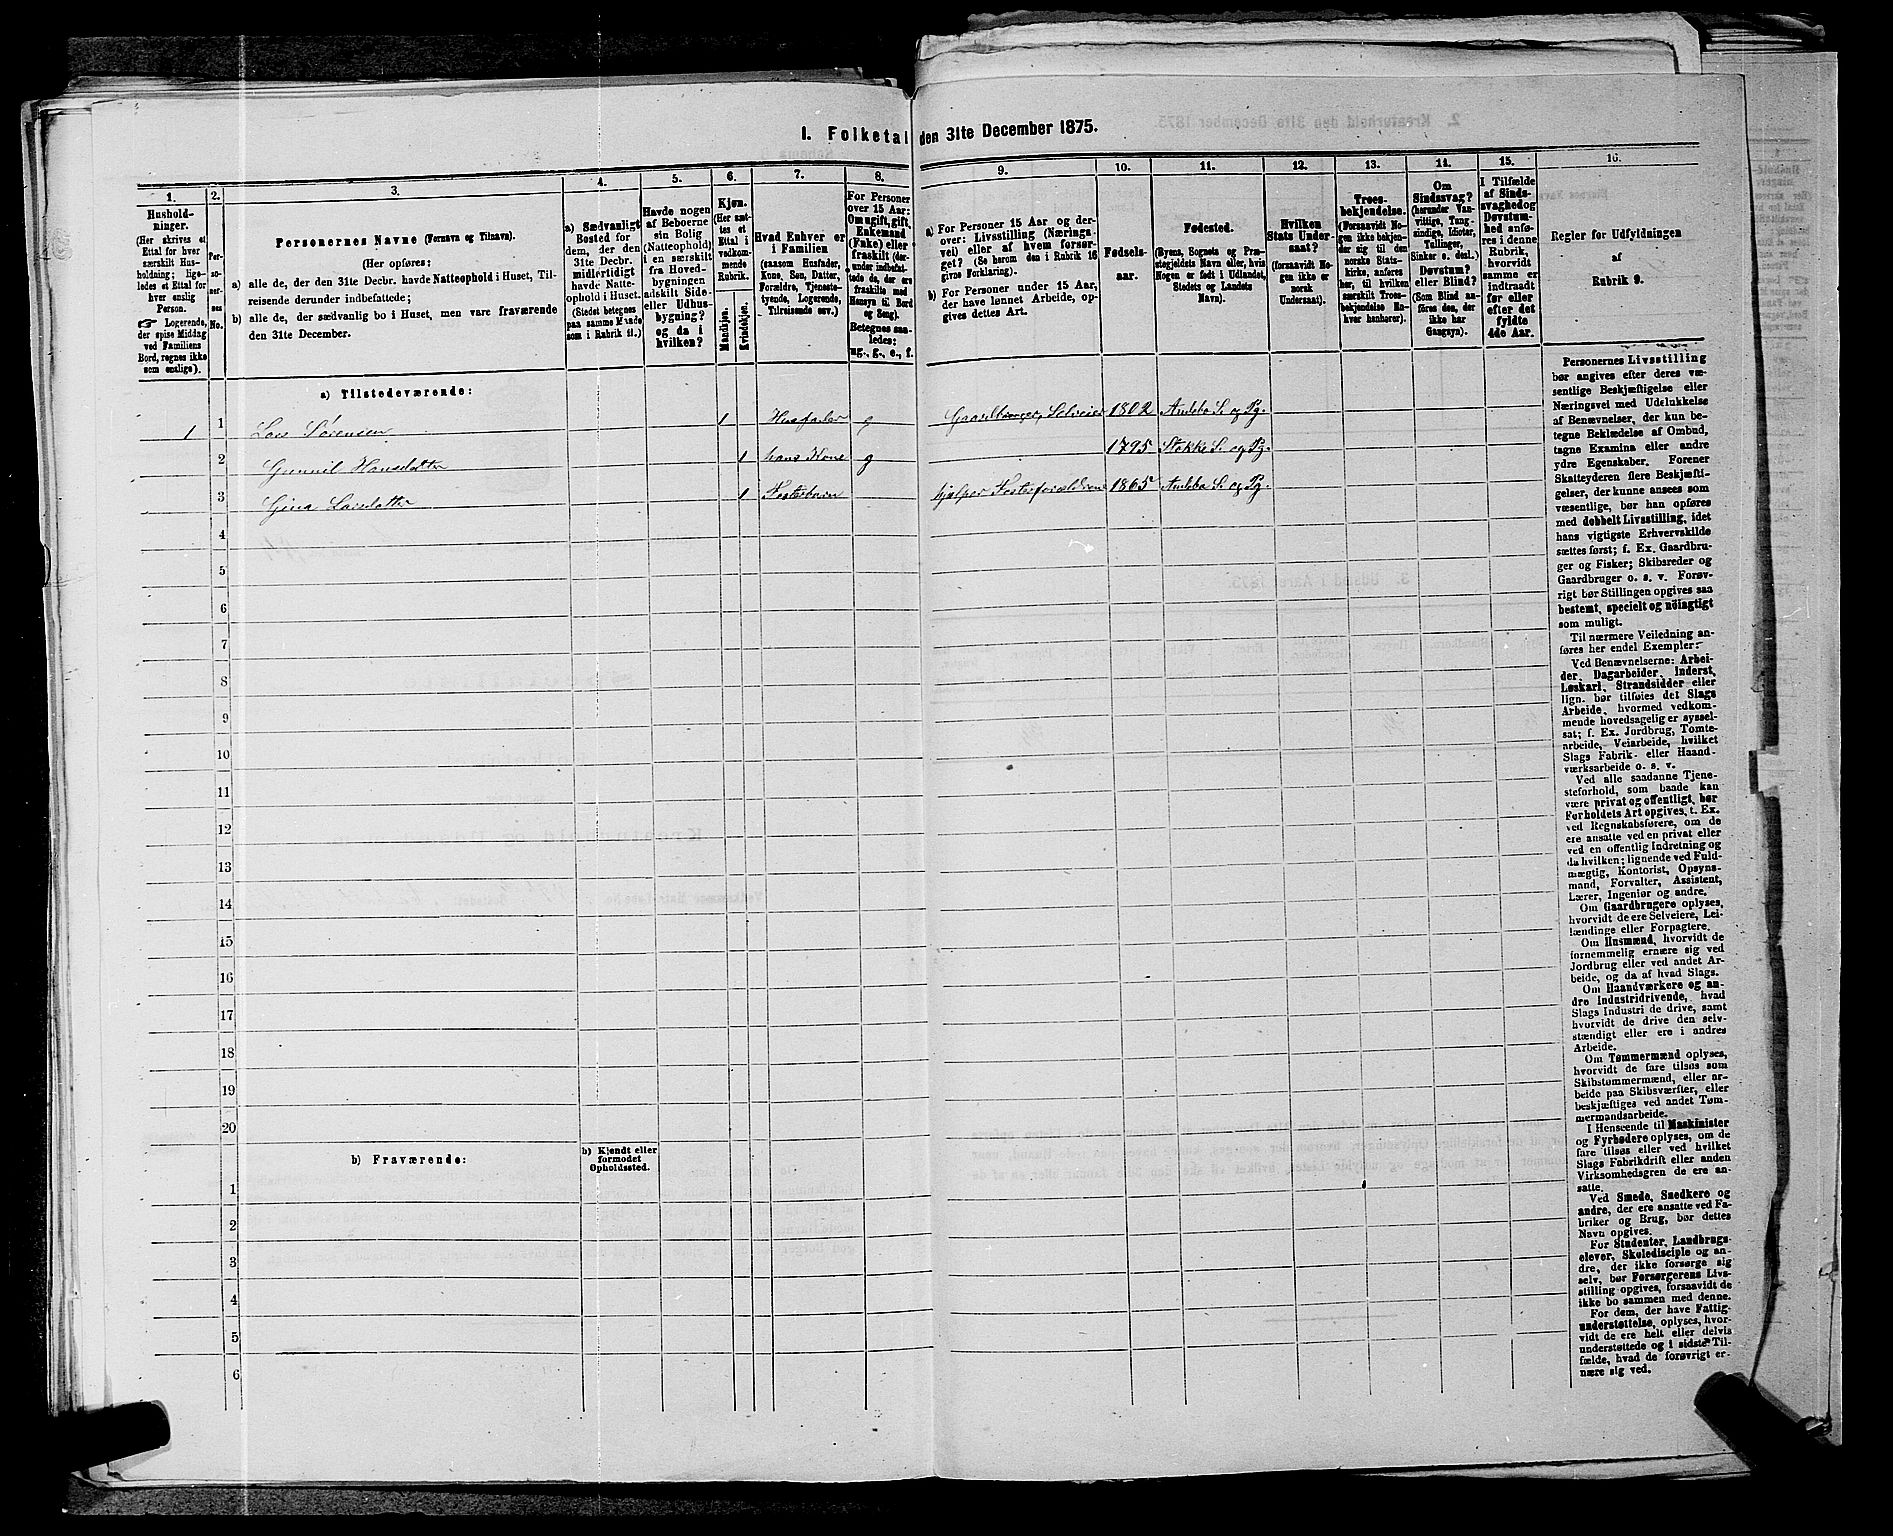 I. Folketal den 31te December 1875.
1. 2. 3. 4. 5. 6. 7. 8. 9. 10. 11. 12. 13. 14. 15. 16.
Hushold-
ninger.
(Her skrives et
Ettal for hver
særskilt Hus-
holdning; lige-
ledes et Ettal for
hver enslig
Person.
☞ Logerende,
der spise Middag
ved Familiens
Bord, regnes ikke
som enslige).
Per-
so-
ner-
nes
No.
Personernes Navne (Fornavn og Tilnavn).
(Her opføres:
a) alle de, der den 31te Decbr. havde Natteophold i Huset, Til-
reisende derunder indbefattede;
b) alle de, der sædvanlig bo i Huset, men vare fraværende
den 31te December.
a) Sædvanligt
Bosted for
dem, der den
31te Decbr.
midlertidigt
havde Natte-
ophold i Huset.
(Stedet betegnes
paa samme Maade
som i Rubrik 11.)
Havde nogen
af Beboerne
sin Bolig
(Natteophold)
i en særskilt
fra Hoved-
bygningen
adskilt Side-
eller Udhus-
bygning?
og da i
hvilken?
Kjøn.
(Her sæt-
tes et
Ettal i
vedkom-
mende
Rubrik.
Mandkjøn.
Kvindekjøn.
Hvad Enhver er
i Familien
(saasom Husfader,
Kone, Søn, Datter,
Forældre, Tjeneste-
tyende, Logerende,
Tilreisende osv.)
For Personer
over 15 Aar:
Om ugift, gift,
Enkemand
(Enke) eller
fraskilt (der-
under indbefat-
tede de, der ere
fraskilte med
Hensyn til Bord
og Seng).
Betegnes saa-
ledes:
ug., g., e., f.
a) For Personer 15 Aar og der-
over: Livsstilling (Nærings-
vei) eller af hvem forsør-
get? (Se herom den i Rubrik 16
givne Forklaring).
b) For Personer under 15 Aar,
der have lønnet Arbeide, op-
gives dettes Art.
Fødsels-
aar.
Fødested.
(Byens, Sognets og Præ-
stegjeldets Navn eller, hvis
Nogen er født i Udlandet,
Stedets og Landets
Navn).
Hvilken
Stats Under-
saat?
(forsaavidt No-
gen ikke er
norsk
Undersaat).
Troes-
bekjendelse.
(Forsaavidt No-
gen ikke bekjen-
der sig til den
norske Stats-
kirke, anføres
her, til hvilken
særskilt Troes-
bekjendelse En-
hver henhører).
Om
Sindssvag?
(herunder Van-
vittige, Tung-
sindige, Idioter,
Tullinger,
Sinker o. desl.)
Døvstum?
eller Blind?
(Som Blind an-
føres den, der
ikke har
Gangsyn).
I Tilfælde
af Sinds-
svaghed og
Døvstum-
hed anfø-
res i denne
Rubrik,
hvorvidt
samme er
indtraadt
før eller
efter det
fyldte
4de Aar.
Regler for Udfyldningen
af
Rubrik 9.
a) Tilstedeværende:
1 1 Lars Sørensen 1 Husfader g Gaardbruger, Selveier 1802 Andebu S. og Pg.
2 Gunnil Hansdatter 1 hans Kone g 1795 Stokke S. og Pg.
3 Gina Larsdatter 1 Fosterbarn hjælper Fosterforældrene 1865 Andebu S. og Pg.
4
5
6
7
8
9
10
11
12
13
14
15
16
17
18
19
20
b) Fraværende:
b) Kjendt eller
formodet
Opholdssted.
1
2
3
4
5
6
Personernes Livsstilling
bør angives efter deres væ-
sentlige Beskjæftigelse eller
Næringsvei med Udelukkelse
af Benævnelser, der kun be-
tegne Beklædelse af Ombud,
tagne Examina eller andre
ydre Egenskaber. Forener
Skatteyderen flere Beskjæfti-
gelser, der kunne ansees som
væsentlige, bør han opføres
med dobbelt Livsstilling, idet
hans vigtigste Erhvervskilde
sættes først; f. Ex. Gaardbru-
ger og Fisker; Skibsreder og
Gaardbruger o. s. v. Forøv-
rigt bør Stillingen opgives saa
bestemt, specielt og nöiagtigt
som muligt.
Til nærmere Veiledning an-
føres her endel Exempler:
Ved Benævnelserne: Arbei-
der, Dagarbeider, Inderst,
Løskarl, Strandsidder eller
lign. bør tilføies det Slags
Arbeide, hvormed vedkom-
mende hovedsagelig er syssel-
sat; f. Ex. Jordbrug, Tomte-
arbeide, Veiarbeide, hvilket
Slags Fabrik- eller Haand-
værksarbeide o. s. v.
Ved alle saadanne Tjene-
steforhold, som baade kan
være privat og offentligt, bør
Forholdets Art opgives, t. Ex.
ved Regnskabsførere, om de
ere ansatte ved en privat eller
ved en offentlig Indretning og
da hvilken; lignende ved Fuld-
mægtig, Kontorist, Opsyns-
mand, Forvalter, Assistent,
Lærer, Ingeniør og andre.
Om Gaardbrugere oplyses,
hvorvidt de ere Selveiere, Lei-
lændinge eller Forpagtere.
Om Husmænd, hvorvidt de
fornemmelig ernære sig ved
Jordbrug eller ved andet Ar-
beide, og da af hvad Slags.
Om Haandværkere og an-
dre Industridrivende, hvad
Slags Industri de drive, samt
hvorvidt de drive den selv-
stændigt eller ere i andres
Arbeide.
Om Tømmermænd oplyses,
hvorvidt de fare tilsøs som
Skibstømmermænd, eller ar-
beide paa Skibsværfter, eller
beskjæftiges ved andet Tøm-
mermandsarbeide.
I Henseende til Maskinister
og Fyrbødere oplyses, om de
fare tilsøs eller ved hvilket
Slags Fabrikdrift eller anden
Virksomhedsgren de ere an-
satte.
Ved Smede, Snedkere og
andre, der ere ansatte ved Fa-
briker og Brug, bør dettes
Navn opgives.
For Studenter, Landbrugs-
elever, Skoledisciple og an-
dre, der ikke forsørge sig
selv, bør Forsørgerens Livs-
stilling opgives, forsaavidt de
ikke bo sammen med denne.
For dem, der have Fattig-
understøttelse, oplyses, hvor-
vidt de ere helt eller delvis
understøttede og i sidste Til-
fælde, hvad de forøvrigt er-
nære sig ved.